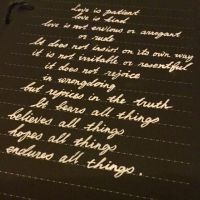 Love is patient
love is kind
love is not envious or arrogant
or rude
It does not insist on its own way
it is not irritable or resentful
it does not rejoice
in wrongdoing
but rejoices in the truth
It bears all things
believes all things
hopes all things
endures all things.